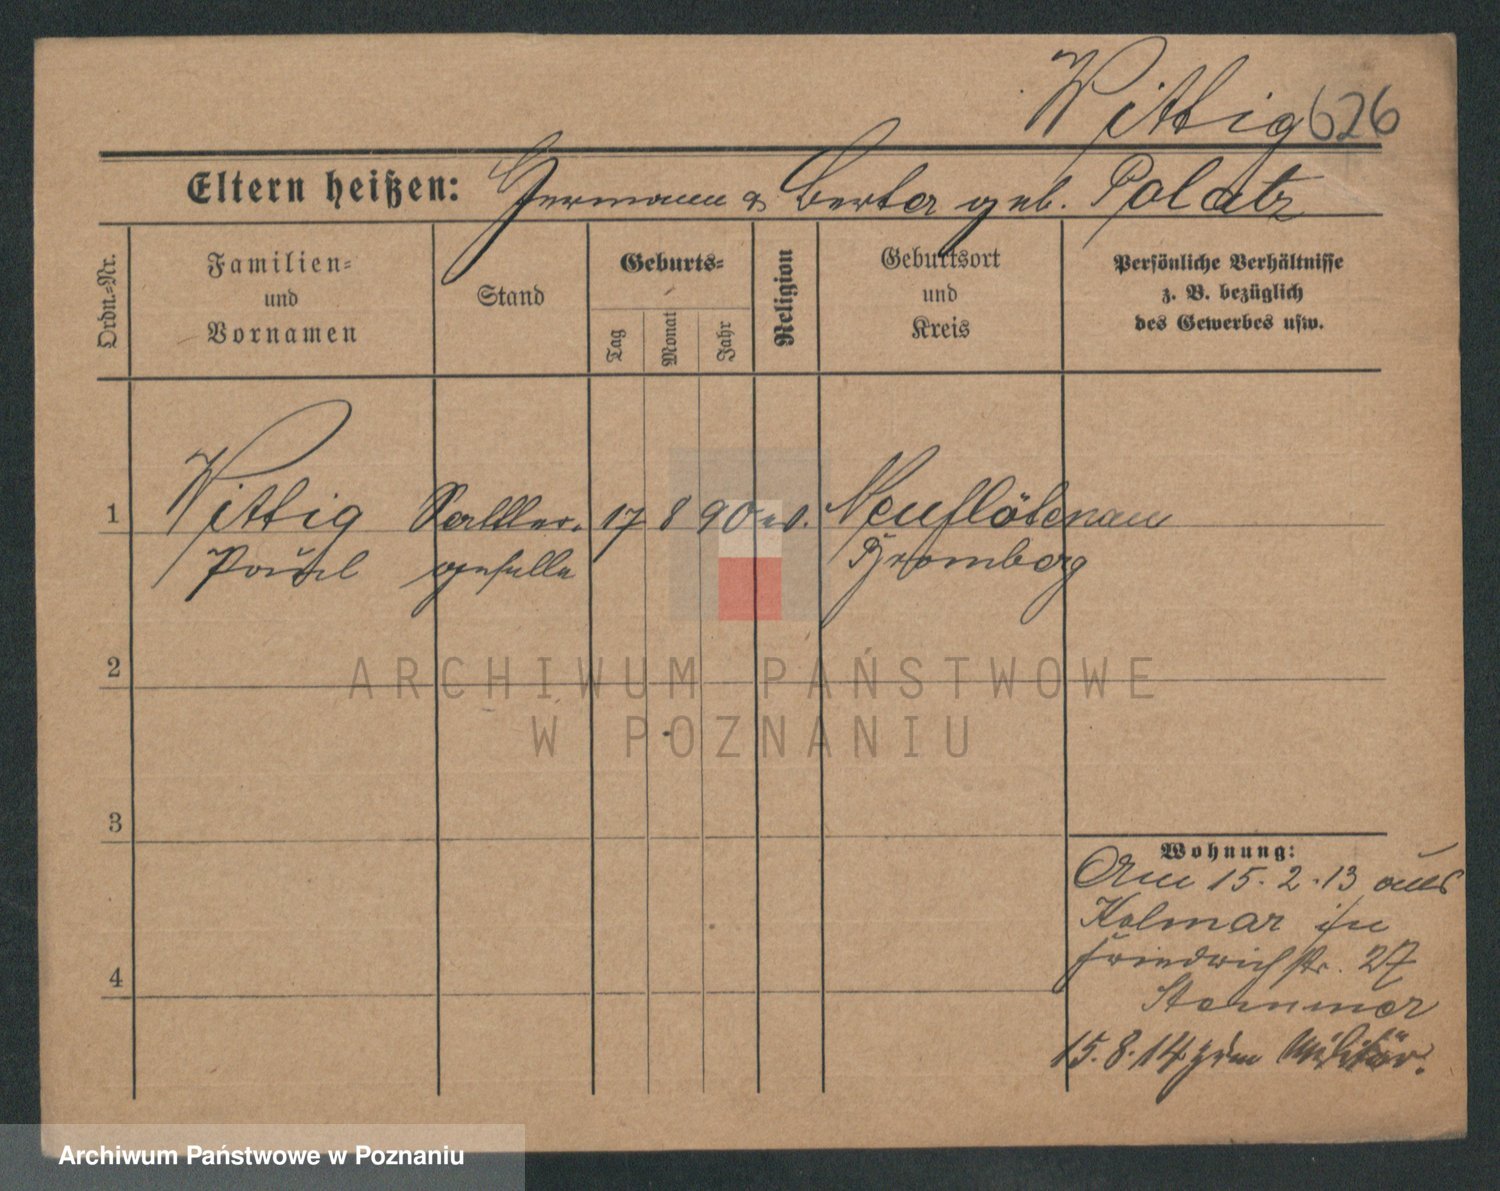 Wittig 626
Eltern heißen: Hermann & Berta geb. Polatz
Ordn.-Nr.
Familien-
und
Vornamen
Stand
Geburts-
Tag
Monat
Jahr
Religion
Geburtsort
und
Kreis
Persönliche Verhältnisse
z. B. bezüglich
des Gewerbes usw.
1 Wittig Sattler- 17 8 90 ev. Neuflötenau
Paul geselle Bromberg
2
ARCHIWUM PAŃSTWOWE
W POZNANIU
3
Wohnung:
Am 15.2.13 aus
Kolmar in
Friedrichstr. 27
4
15.8.14 zum Militär.
Archiwum Państwowe w Poznaniu